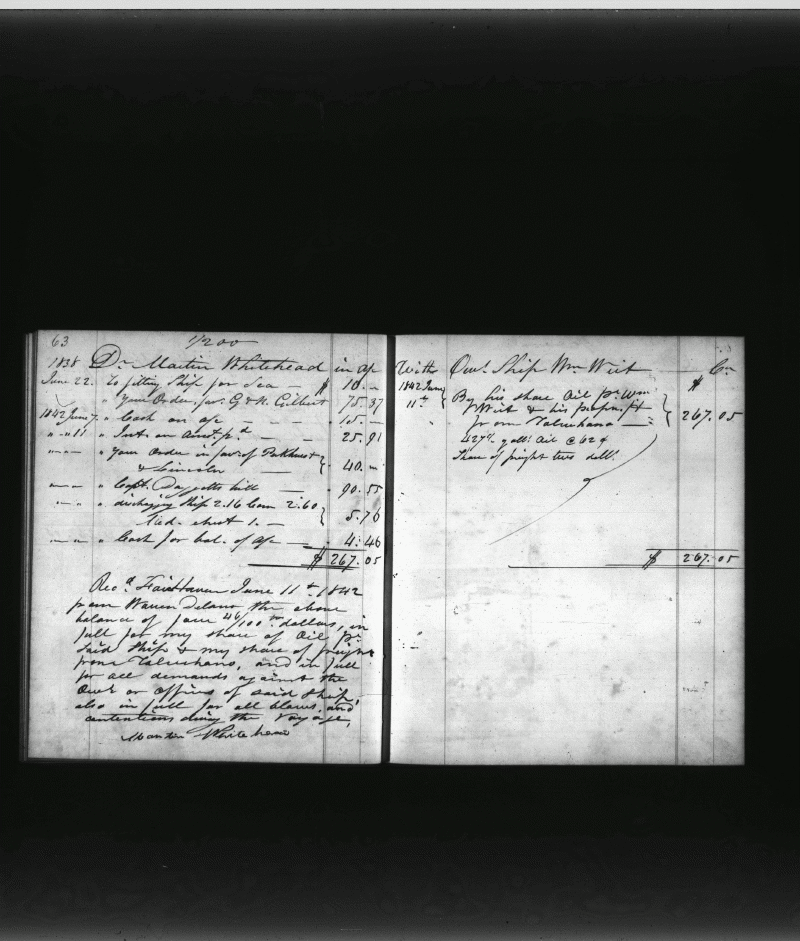 63 1/200
1838 Dr Martin Whitehead in a/c
June 22. To fitting Ship for Sea — $ 10. —
" Your Order, favr G & N. Gilbert 75.37
1842 June 7. " Cash on a/c — — 15. —
" — " 11 " Int. on Amt. pd — — 25.91
" — " — " Your Order in favr of Parkhurst
& Lincoln — 40. —
" — " — " Capt. Daggetts bill — 90.55
" — " — " discharging Ship 2.16 2.60
Med. chest 1. — 5.76
" — " — " Cash for bal. of a/c — 4.46
$ 267.05
Recd. Fairhaven June 11th 1842
from Warren Delano the above
balance of four 46/100 dollars, in
full for my share of Oil pr.
Said Ship & my share of freight
from Talcuhano, and in full
for all demands against the
Owrs or Officers of said Ship,
also in full for all blows, and
contentions during the Voyage,
Martin Whitehead
With Owrs Ship Wm Wirt Cr
1842 June $
11th By his share Oil pr. Wm
Wirt & his propn. frt
from Talcuhano — 267.05
427 galls Oil @ 62¢
Share of freight two dolls
$ 267.05